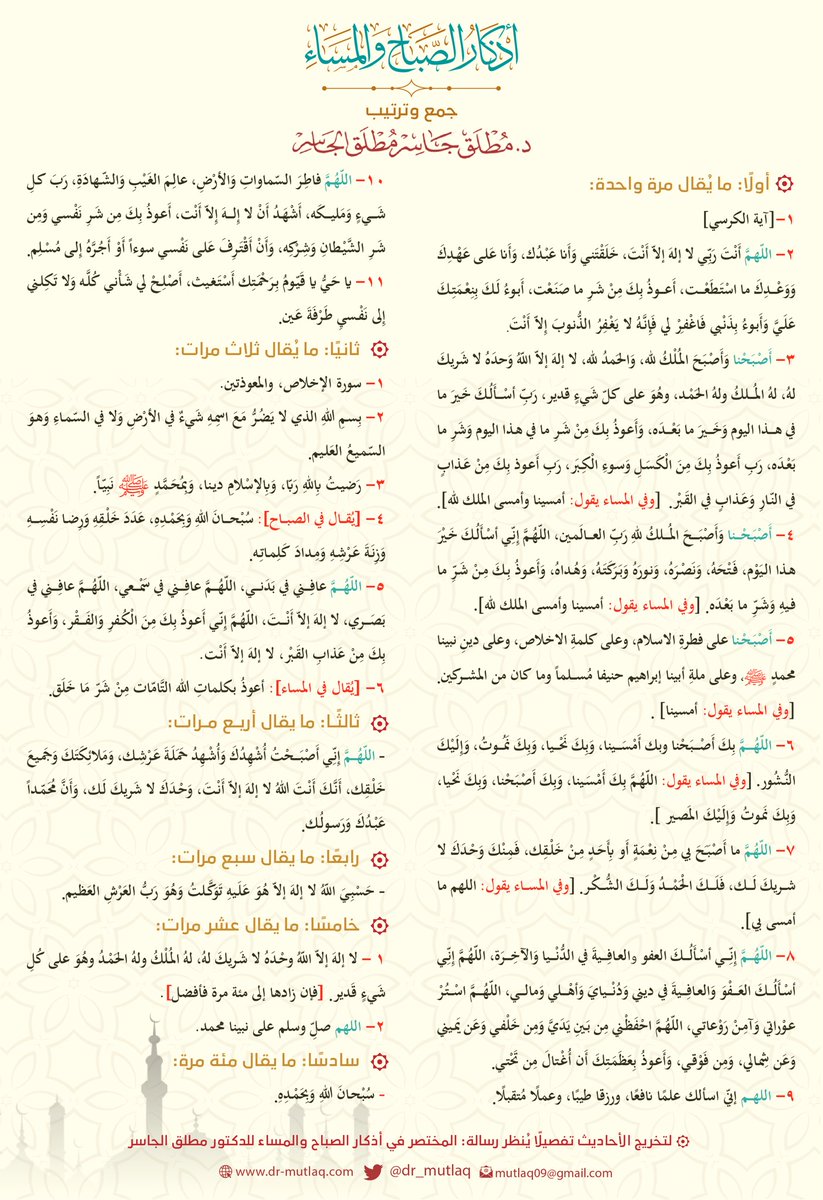 أذكار الصَّباح والمسَاء
جمع وترتيب
د. مُطلَق جَاسِر مُطلَق الجَاسِر
أولًا: ما يُقال مرة واحدة:
١- [آية الكرسي]
٢- اللَّهمَّ أَنْتَ رَبِّي لا إلهَ إلاّ أَنْتَ، خَلَقْتَني وَأَنا عَبْدُك، وَأَنا عَلى عَهْدِكَ
وَوَعْـدِكَ ما اسْتَطَعْـت، أَعـوذُ بِكَ مِنْ شَرِ ما صَنَعْت، أَبوءُ لَـكَ بِنِعْمَتِكَ
عَلَيَّ وَأَبوءُ بِذَنْبي فَاغْفِرْ لي فَإِنَّهُ لا يَغْفِرُ الذُّنوبَ إِلاّ أَنْتَ.
٣- أَصْبَحْنا وَأَصْبَحَ المُلْكُ لله، وَالحَمدُ لله، لا إلهَ إلاّ اللهُ وَحدَهُ لا شَريكَ
لهُ، لهُ المُـلكُ ولهُ الحَمْـد، وهُوَ على كلّ شَيءٍ قدير، رَبِّ أسْـأَلُـكَ خَيرَ ما
في هـذا اليوم وَخَـيرَ ما بَعْـدَه، وَأَعوذُ بِكَ مِنْ شَرِ ما في هذا اليوم وَشَرِ ما
بَعْدَه، رَبِ أَعوذُ بِكَ مِنَ الْكَسَلِ وَسوءِ الْكِبَر، رَبِ أَعوذ بِكَ مِنْ عَذابٍ
في النّارِ وَعَذابٍ في القَبْر. [وفي المساء يقول: أمسينا وأمسى الملك لله].
٤- أَصْبَحْـنا وَأَصْبَـحَ المُـلكُ للهِ رَبِّ العـالَمين، اللّهُمَّ إِنِّي أَسْأَلُكَ خَيْرَ
هذا اليَوْم، فَتْحَهُ، وَنَصْرَهُ، وَنورَهُ وَبَرَكَتَهُ، وَهُداهُ، وَأَعوذُ بِكَ مِنْ شَرِّ ما
فيهِ وَشَرِّ ما بَعْدَه. [وفي المساء يقول: أمسينا وأمسى الملك لله].
٥- أَصْبَحْنا على فطرةِ الاسلام، وعلى كلمةِ الاخلاص، وعلى دينِ نبينا
محمدٍ ﷺ، وعلى ملةِ أبينا إبراهيم حنيفا مُسـلماً وما كان من المشـركين.
[وفي المساء يقول: أمسينا] .
٦- اللّهُـمَّ بِكَ أَصْـبَحْنا وبك أمْسَـينا، وَبِكَ نَحْـيا، وَبِكَ نَمُـوتُ، وَإِلَيْكَ
النُّشُور. [وفي المساء يقول: اللّهُمَّ بِكَ أَمْسَينا، وَبِكَ أَصْبَحْنا، وَبِكَ نَحْيا،
وَبِكَ نَموتُ وَإِلَيْكَ المَصير ].
٧- اللّهُمَّ ما أَصْبَحَ بي مِنْ نِعْمَةٍ أَو بِأَحَدٍ مِنْ خَلْقِك، فَمِنْكَ وَحْدَكَ لا
شريكَ لَـك، فَلَـكَ الْحَمْـدُ وَلَـكَ الشُّـكْر. [وفي المساء يقول: اللهم ما
أمسى بي].
٨- اللّهُـمَّ إِنِّـي أَسْأَلُـكَ العفو والعافِـيةَ في الدُّنْـيا وَالآخِـرَة، اللّهُمَّ إِنِّي
أَسْأَلُـكَ العَـفْوَ وَالعافِـيةَ في ديني وَدُنْـيايَ وَأهْـلي وَمالـي، اللّهُـمَّ اسْـتُرْ
عوْراتي وَآمِنْ رَوْعاتي، اللّهُمَّ احْفَظْني مِن بَينِ يَدَيَّ وَمِن خَلْفي وَعَن يَميني
وَعَن شِمالي، وَمِن فَوْقي، وَأَعوذُ بِعَظَمَتِكَ أَن أُغْتالَ مِن تَحْتي.
٩- اللهم إنِّي اسالك علمًا نافعًا، ورزقا طيبًا، وعملًا مُتقبلًا.
١٠- اللّهُمَّ فاطِرَ السّماواتِ وَالأرْضِ، عالِمَ الغَيْبِ وَالشّهادَةِ، رَبَ كـلِ
شَـيءٍ وَمَليـكَه، أَشْهَدُ أَنْ لا إِلـهَ إِلاّ أَنْت، أَعوذُ بِكَ مِن شَرِ نَفْسي وَمِن
شَرِ الشَّيْطانِ وَشِركِه، وَأَنْ أَقْتَرِفَ عَلى نَفْسي سوءاً أَوْ أَجُرَّهُ إِلى مُسْلِم.
١١- يا حَيُّ يا قَيّومُ بِرَحْمَتِك أَسْتَغيث، أَصْلِحْ لي شَأني كُلَّه وَلا تَكِلني
إِلى نَفْسي طَرْفَةَ عَين.
ثانيًا: ما يُقال ثلاث مرات:
١- سورة الإخلاص، والمعوذتين.
٢- بِسمِ اللهِ الذي لا يَضُرُّ مَعَ اسمِهِ شَيءٌ في الأرْضِ وَلا في السّماءِ وَهوَ
السّميعُ العَليم.
٣- رَضيتُ بِاللهِ رَبّا، وَبِالإسْلامِ دينا، وَبِمُحَمَّدٍ ﷺ نَبِيّاً.
٤- [يُقـال في الصبـاح]: سُبْحـانَ اللهِ وَبِحَمْدِهِ، عَدَدَ خَلْقِهِ وَرِضا نَفْسِـهِ
وَزِنَةَ عَرْشِهِ وَمِدادَ كَلِماتِه.
٥- اللّهُـمَّ عافِـني في بَدَنـي، اللّهُـمَّ عافِـني في سَمْـعي، اللّهُـمَّ عافِـني في
بَصَـري، لا إلهَ إلاّ أَنْـتَ، اللّهُمَّ إِنّي أَعوذُ بِكَ مِنَ الْكُفرِ وَالفَـقْر، وَأَعوذُ
بِكَ مِنْ عَذابِ القَبْر، لا إلهَ إلاّ أَنْت.
٦- [يُقال في المساء]: أعوذُ بكلماتِ الله التَّامّات مِنْ شَرّ مَا خَلَق.
ثالثًا: ما يقال أربع مرات:
- اللّهُـمَّ إِنِّي أَصْبَـحْتُ أُشْهِدُكَ وَأُشْهِدُ حَمَلَةَ عَرْشِك، وَمَلائِكَتَكَ وَجَميعَ
خَلْقِك، أَنَّكَ أَنْتَ اللهُ لا إلهَ إلاّ أَنْتَ، وَحْدَكَ لا شَريكَ لَك، وَأَنَّ مُحَمّداً
عَبْدُكَ وَرَسولُك.
رابعًا: ما يقال سبع مرات:
- حَسْبِيَ اللهُ لا إلهَ إلاّ هُوَ عَلَيهِ تَوَكَّلتُ وَهُوَ رَبُّ العَرْشِ العَظيم.
خامسًا: ما يقال عشر مرات:
١ - لا إلهَ إلاّ اللهُ وحْدَهُ لا شَريكَ لهُ، لهُ المُلْكُ ولهُ الحَمْدُ وهُوَ على كُلِ
شَيءٍ قَدير. [فإن زادها إلى مئة مرة فأفضل].
٢- اللهم صلّ وسلم على نبينا محمد.
سادسًا: ما يقال مئة مرة:
- سُبْحانَ اللهِ وَبِحَمْدِهِ.
لتخريج الأحاديث تفصيلًا يُنظر رسالة: المختصر في أذكار الصباح والمساء للدكتور مطلق الجاسر
www.dr-mutlaq.com @dr_mutlaq mutlaq09@gmail.com